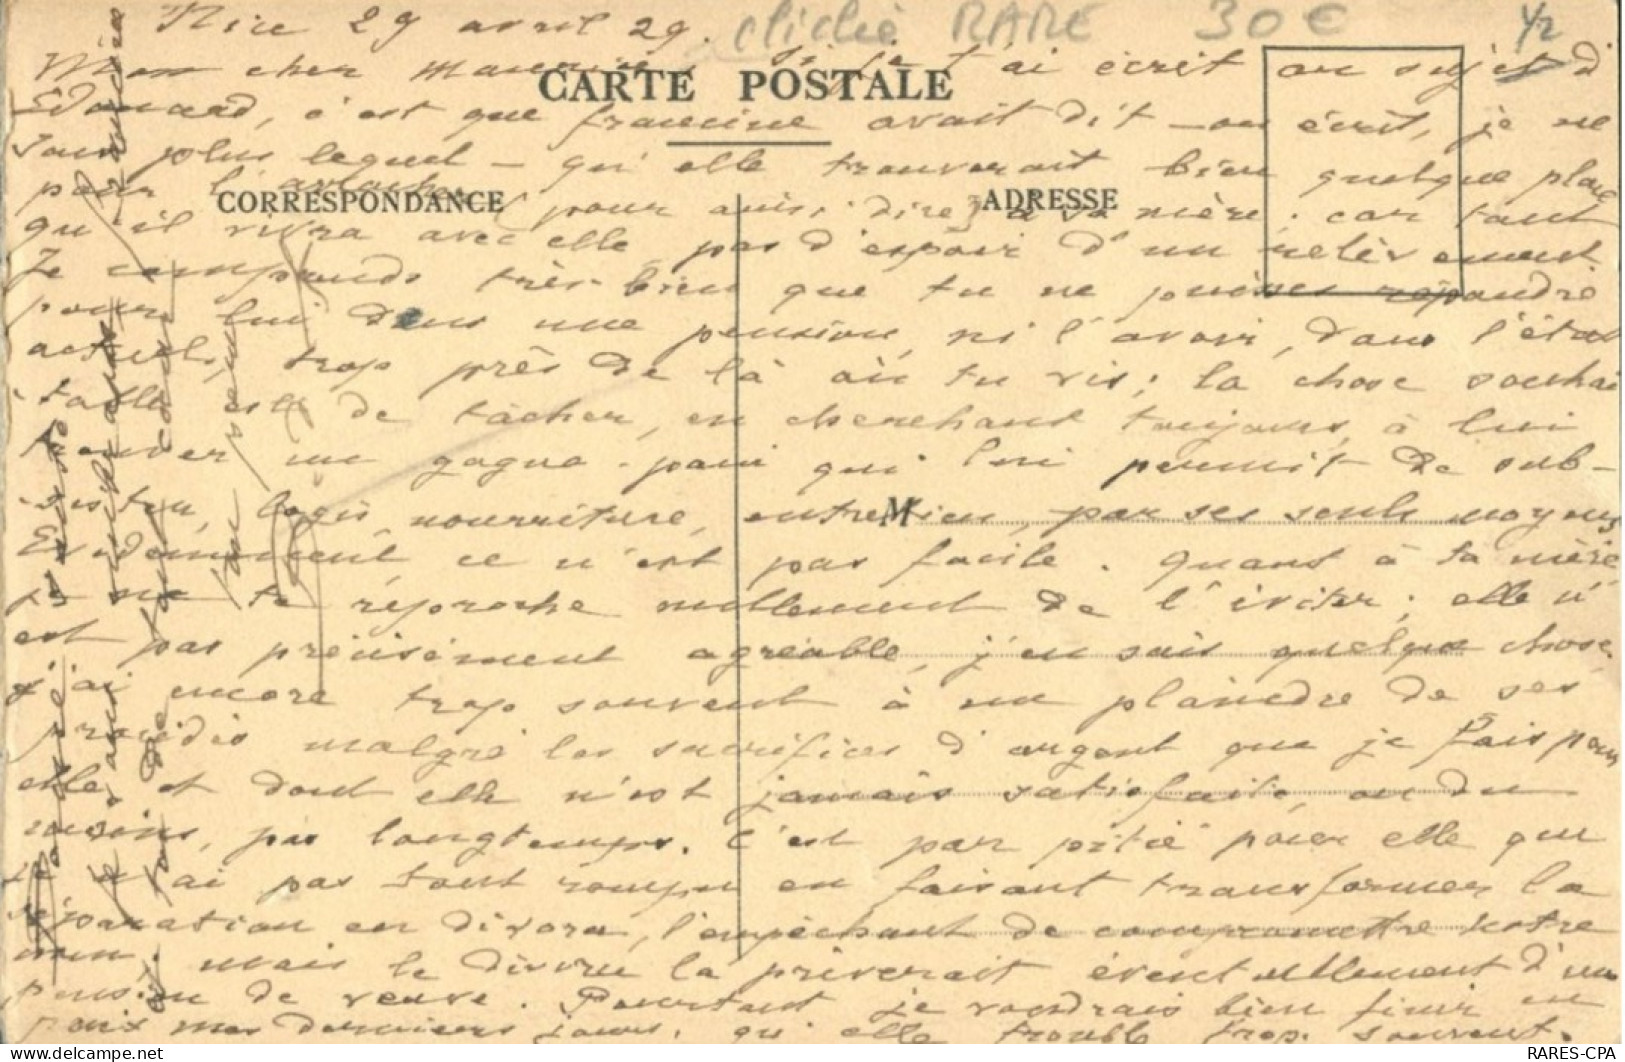 Nice 29 avril 29.
cliché RARE 30€ 1/2
Mon cher Maurice, Si je t'ai écrit au sujet d'
CARTE POSTALE
Edouard, c'est que francine avait dit - ou écrit, je ne
sais plus lequel - qu'elle trouverait bien quelque place
CORRESPONDANCE
ADRESSE
pour l' (pour ainsi dire) à sa mère; car tant
qu'il vivra avec elle pas d'espoir d'un relèvement
Je comprends très bien que tu ne puisses répondre
pour lui dans une pension, ni l'avoir, dans l'état
actuel, trop près de là où tu vis; la chose souhai
table est de tâcher, en cherchant toujours, à lui
trouver un gagne-pain qui lui permit de sub-
sister, logis, nourriture, entretien, par ses seuls moyens
M
Evidemment ce n'est pas facile. Quant à ta mère
je ne te reproche nullement de l'éviter; elle n'
est pas précisément agréable, j'en sais quelque chose.
j'ai encore trop souvent à me plaindre de ses
procédés malgré les sacrifices d'argent que je fais pour
elle et dont elle n'est jamais satisfaite, ou du
moins, pas longtemps. C'est par pitié pour elle que
je n'ai pas tout rompu en faisant transformer la
séparation en divorce, l'empêchant de compromettre notre
nom. mais le divorce la priverait éventuellement d'une
pension de veuve. Pourtant je voudrais bien finir en
paix mes derniers jours, qu'elle trouble trop souvent.
RARES-CPA